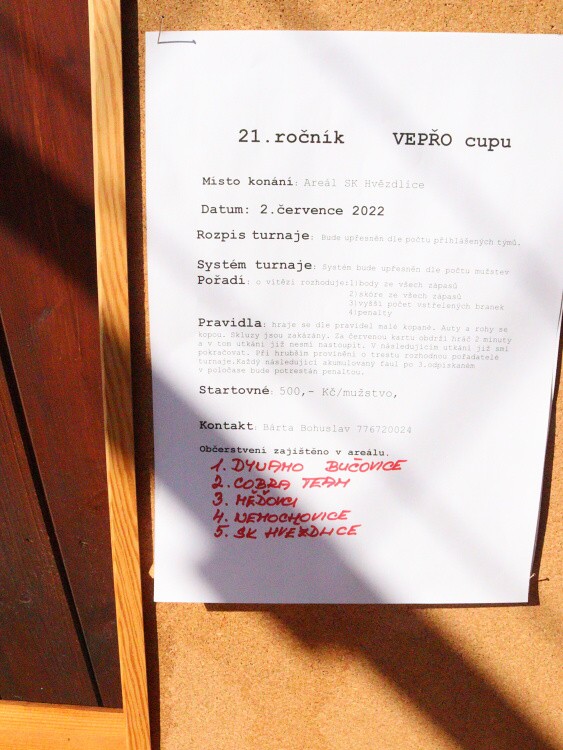 21.ročník VEPŘO cupu
Místo konání: Areál SK Hvězdlice
Datum: 2.července 2022
Rozpis turnaje: Bude upřesněn dle počtu přihlášených týmů.
Systém turnaje: Systém bude upřesněn dle počtu mužstev
Pořadí: o vítězi rozhoduje:1)body ze všech zápasů
2)skóre ze všech zápasů
3)vyšší počet vstřelených branek
4)penalty
Pravidla: hraje se dle pravidel malé kopané. Auty a rohy se
kopou. Skluzy jsou zakázány. Za červenou kartu obdrží hráč 2 minuty
a v tom utkání již nesmí nastoupit. V následujícím utkání již smí
pokračovat. Při hrubším provinění o trestu rozhodnou pořadatelé
turnaje.Každý následující akumulovaný faul po 3.odpískaném
v poločase bude potrestán penaltou.
Startovné: 500,- Kč/mužstvo,
Kontakt: Bárta Bohuslav 776720024
Občerstvení zajištěno v areálu.
1. DYNAMO BUČOVICE
2. COBRA TEAM
3. MĚĎOVCI
4. NEMOCHOVICE
5. SK HVĚZDLICE